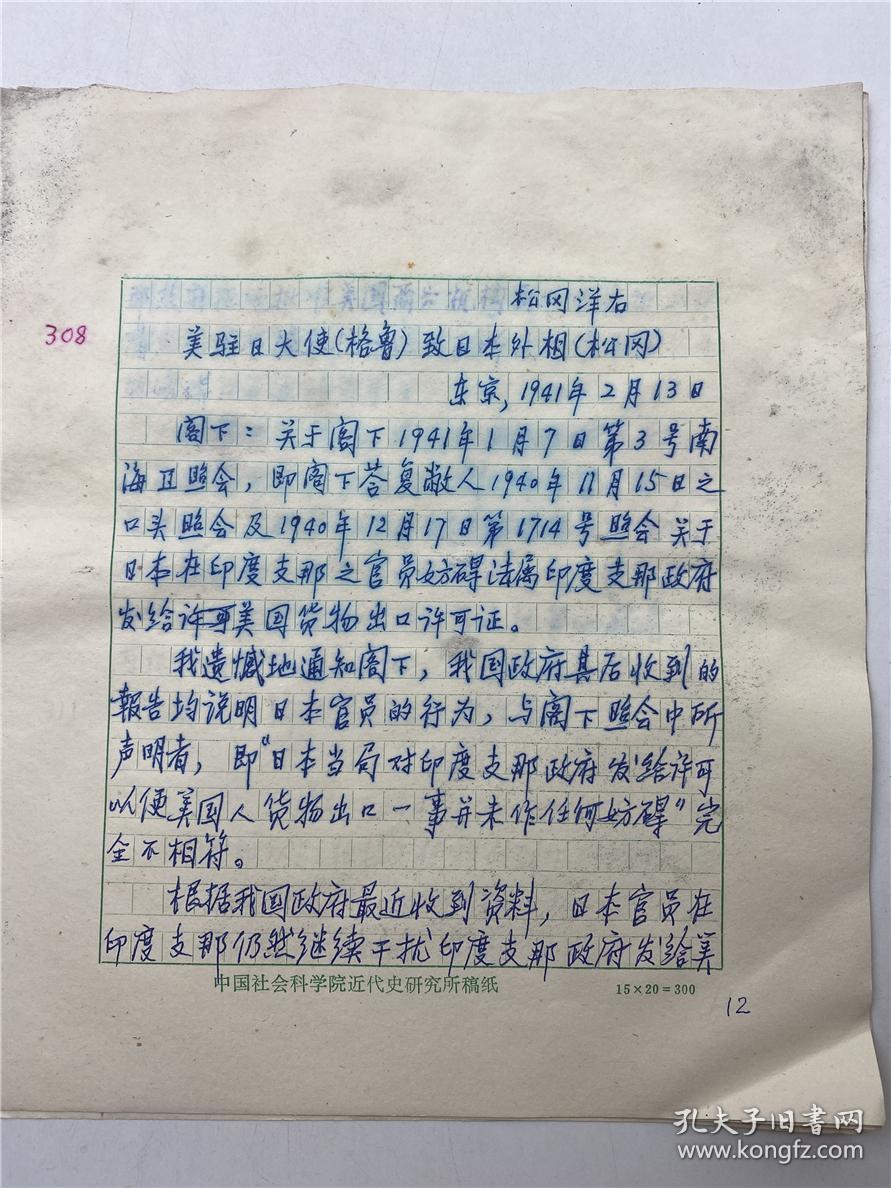 松冈洋右
308
美驻日大使(格鲁)致日本外相(松冈)
东京,1941年2月13日
阁下:关于阁下1941年1月7日第3号南
海亚照会,即阁下答复敝人1940年11月15日之
口头照会及1940年12月17日第1714号照会关于
日本在印度支那之官员妨碍法属印度支那政府
发给美国货物出口许可证。
我遗憾地通知阁下,我国政府其后收到的
報告均说明日本官员的行为,与阁下照会中所
声明者,即“日本当局对印度支那政府发给许可
以便美国人货物出口一事并未作任何妨碍”完
全不相符。
根据我国政府最近收到资料,日本官员在
印度支那仍然继续干扰印度支那政府发给美
中国社会科学院近代史研究所稿纸
15×20=300
12
孔夫子旧书网
www.kongfz.com